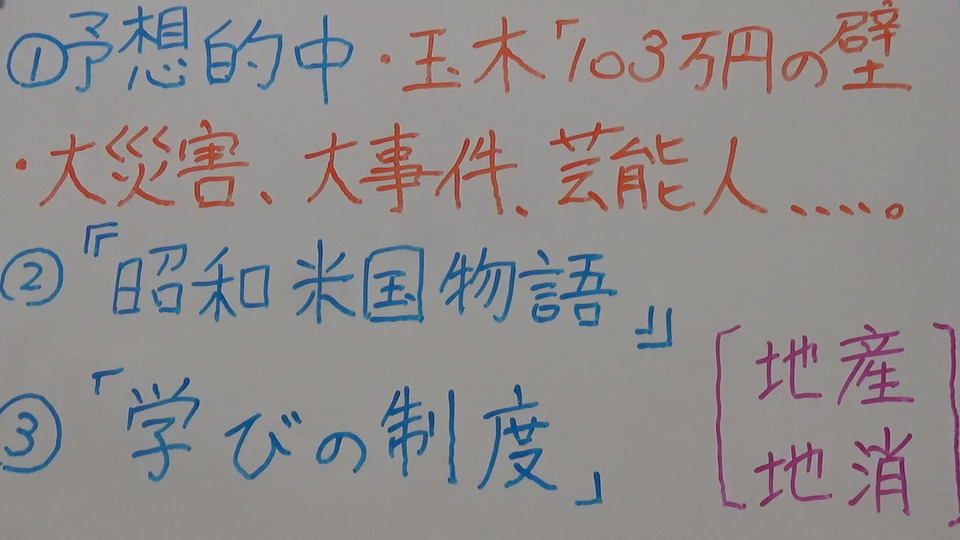 ①予想的中・玉木「103万円の壁
・大災害、大事件、芸能人.....。
②『昭和米国物語』
③「学びの制度」
[地産
地消]